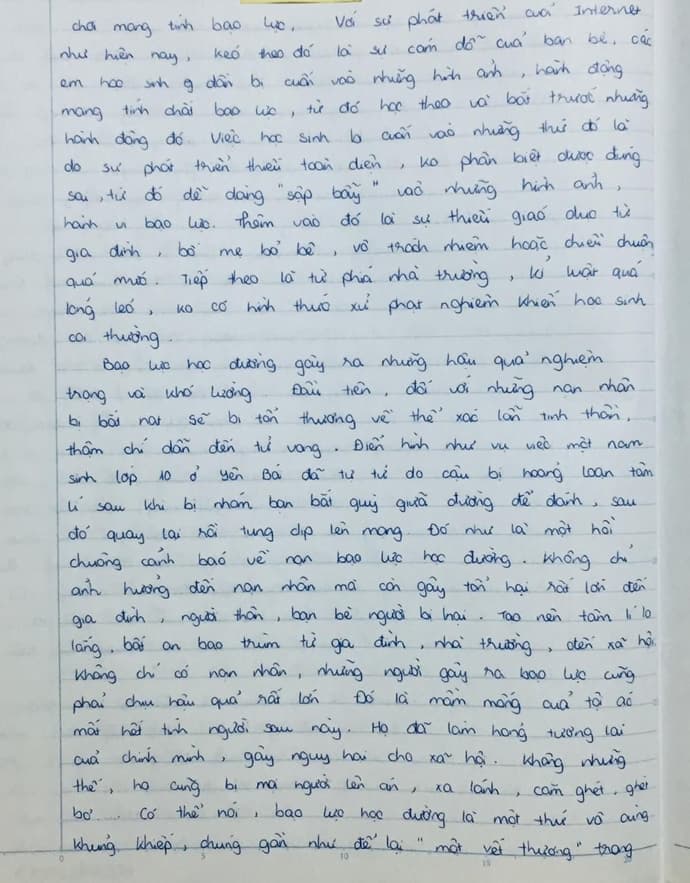 chơi mang tính bạo lực. Với sự phát triển của Internet
như hiện nay, kéo theo đó là sự cám dỗ của bạn bè, các
em học sinh dần bị cuốn vào những hình ảnh, hành động
mang tính chất bạo lực, từ đó học theo và bắt trước những
hành động đó. Việc học sinh bị cuốn vào những thứ đó là
do sự phát triển thiếu toàn diện, ko phân biệt được đúng
sai, từ đó dễ dàng "sập bẫy" vào những hình ảnh,
hành vi bạo lực. Thêm vào đó là sự thiếu giáo dục từ
gia đình, bố mẹ bỏ bê, vô trách nhiệm hoặc chiều chuộng
quá mức. Tiếp theo là từ phía nhà trường, kỉ luật quá
lỏng lẻo, ko có hình thức xử phạt nghiêm khiến học sinh
coi thường.
Bạo lực học đường gây ra những hậu quả nghiêm
trọng và khó lường. Đầu tiên, đối với những nạn nhân
bị bắt nạt sẽ bị tổn thương về thể xác lẫn tinh thần,
thậm chí dẫn đến tử vong. Điển hình như vụ việc một nam
sinh lớp 10 ở Yên Bái đã tự tử do cậu bị hoảng loạn tâm
lí sau khi bị nhóm bạn bắt quỳ giữa đường để đánh, sau
đó quay lại rồi tung clip lên mạng. Đó như là một hồi
chuông cảnh báo về nạn bạo lực học đường. Không chỉ
ảnh hưởng đến nạn nhân mà còn gây tổn hại rất lớn đến
gia đình, người thân, bạn bè người bị hại. Tạo nên tâm lí lo
lắng, bất an bao trùm từ gia đình, nhà trường, đến xã hội.
Không chỉ có nạn nhân, những người gây ra bạo lực cũng
phải chịu hậu quả rất lớn. Đó là mầm mống của tội ác
mất hết tính người sau này. Họ đã làm hỏng tương lai
của chính mình, gây nguy hại cho xã hội. Không những
thế, họ cũng bị mọi người lên án, xa lánh, căm ghét, ghét
bỏ. Có thể nói, bạo lực học đường là một thứ vô cùng
khủng khiếp, chúng gần như để lại "một vết thương" trong
0 5 10 15